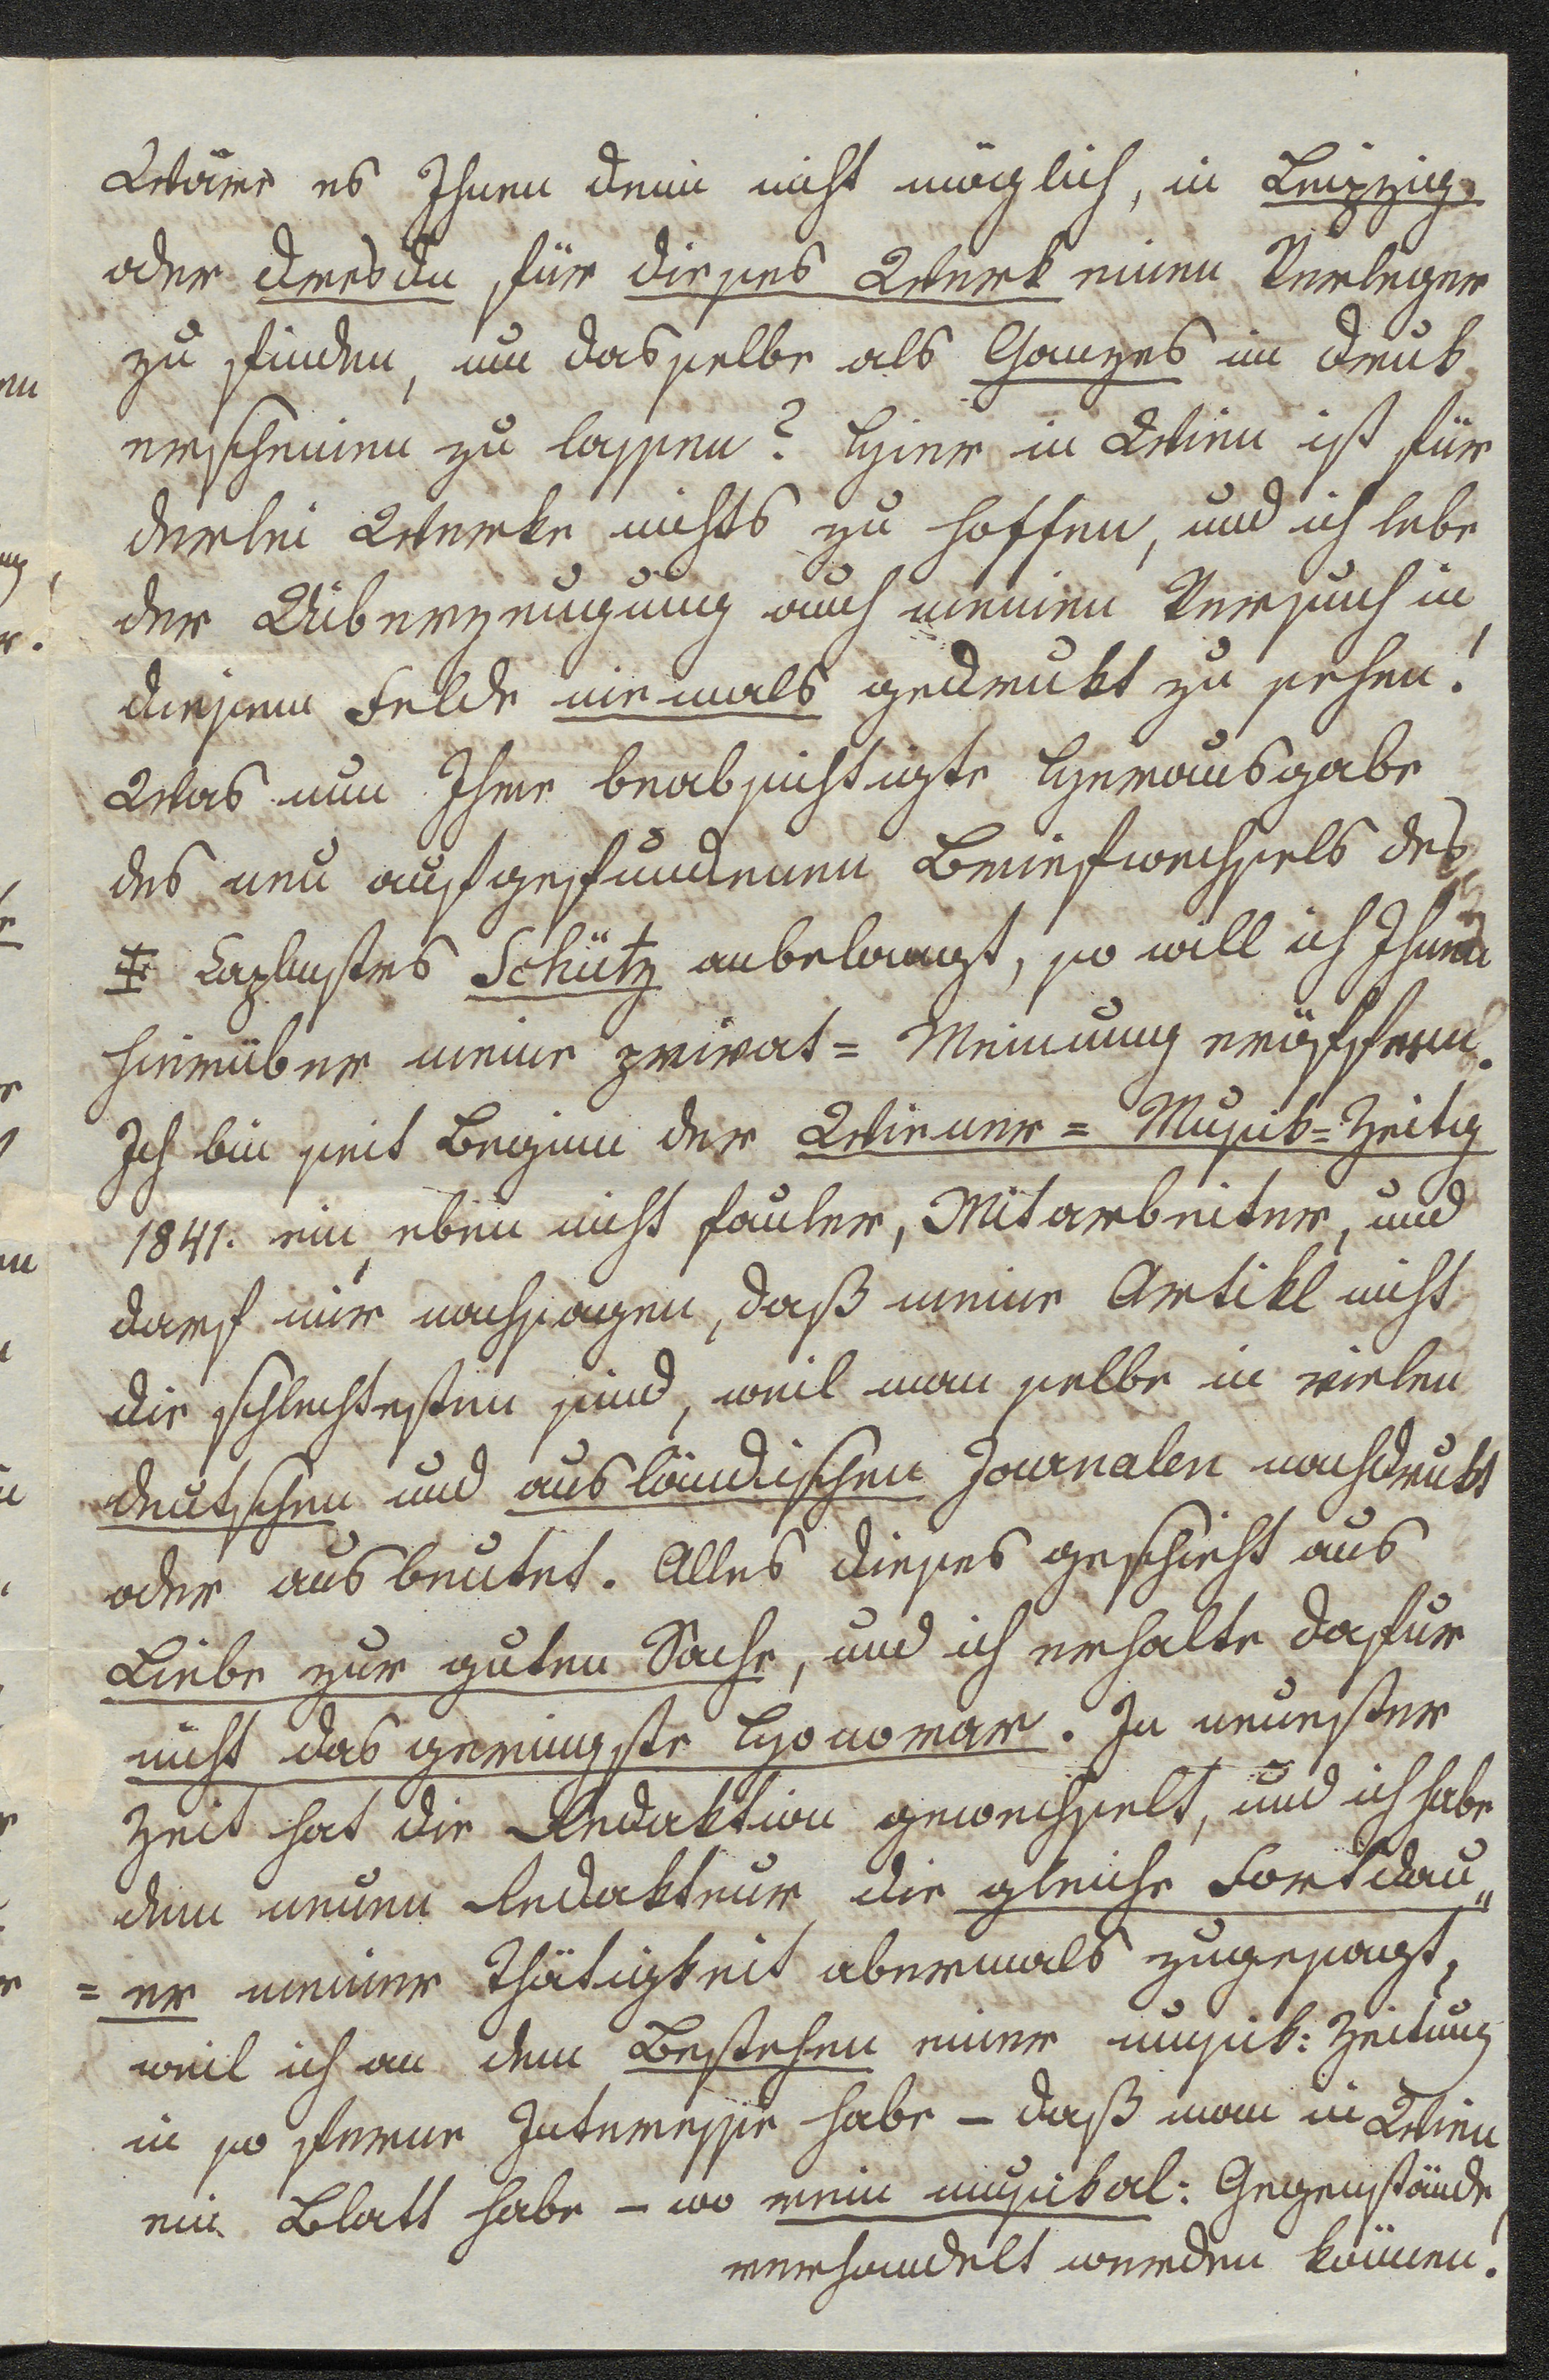 Wäre es Ihnen denn nicht möglich, in Leipzig,
oder Dresden für dieses Werk einen Verleger
zu finden, um dasselbe als Ganzes im Druk
erscheinen zu lassen? Hier in Wien ist für
derlei Werke nichts zu hoffen, und ich lebe
der Uiberzeugung auch meinen Versuch in
diesem Felde niemals gedrukt zu sehen!
Was nun Ihre beabsichtigte Herausgabe
des neu aufgefundenen Briefwechsels des
Caplmstrs Schütz anbelangt, so will ich Ihnen
hierüber meine privat= Meinung eröffnen.
Ich bin seit Beginn der Wiener = Musik=Zeitg
1841. ein, eben nicht fauler, Mitarbeiter, und
darf mir nachsagen, daß meine Artikl nicht
die schlechtesten sind, weil man selbe in vielen
deutschen und ausländischen Journalen nachdrukt
oder ausbeutet. Alles dieses geschieht aus
Liebe zur guten Sache, und ich erhalte dafür
nicht das geringste Honorar. In neuester
Zeit hat die Redaktion gewechselt, und ich habe
dem neuen Redakteur die gleiche Fortdau„
=er meiner Thätigkeit abermals zugesagt,
weil ich an dem Bestehen einer musik: Zeitung
in so ferne Interesse habe – daß man in Wien
ein Blatt habe – wo rein musikal: Gegenstände
verhandelt werden können.